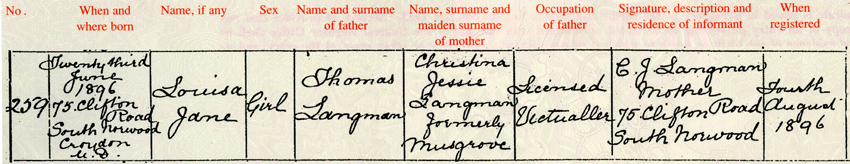 No.
When and
where born
Name, if any
Sex
Name and surname
of father
Name, surname and
maiden surname
of mother
Occupation
of father
Signature, description and
residence of informant
When
registered
259
Twenty third
June
1896
75 Clifton
Road
South Norwood
Croydon
U.D.
Louisa
Jane
Girl
Thomas
Langman
Christina
Jessie
Langman
formerly
Musgrove
Licensed
Victualler
C J Langman
Mother
75 Clifton Road
South Norwood
Fourth
August
1896